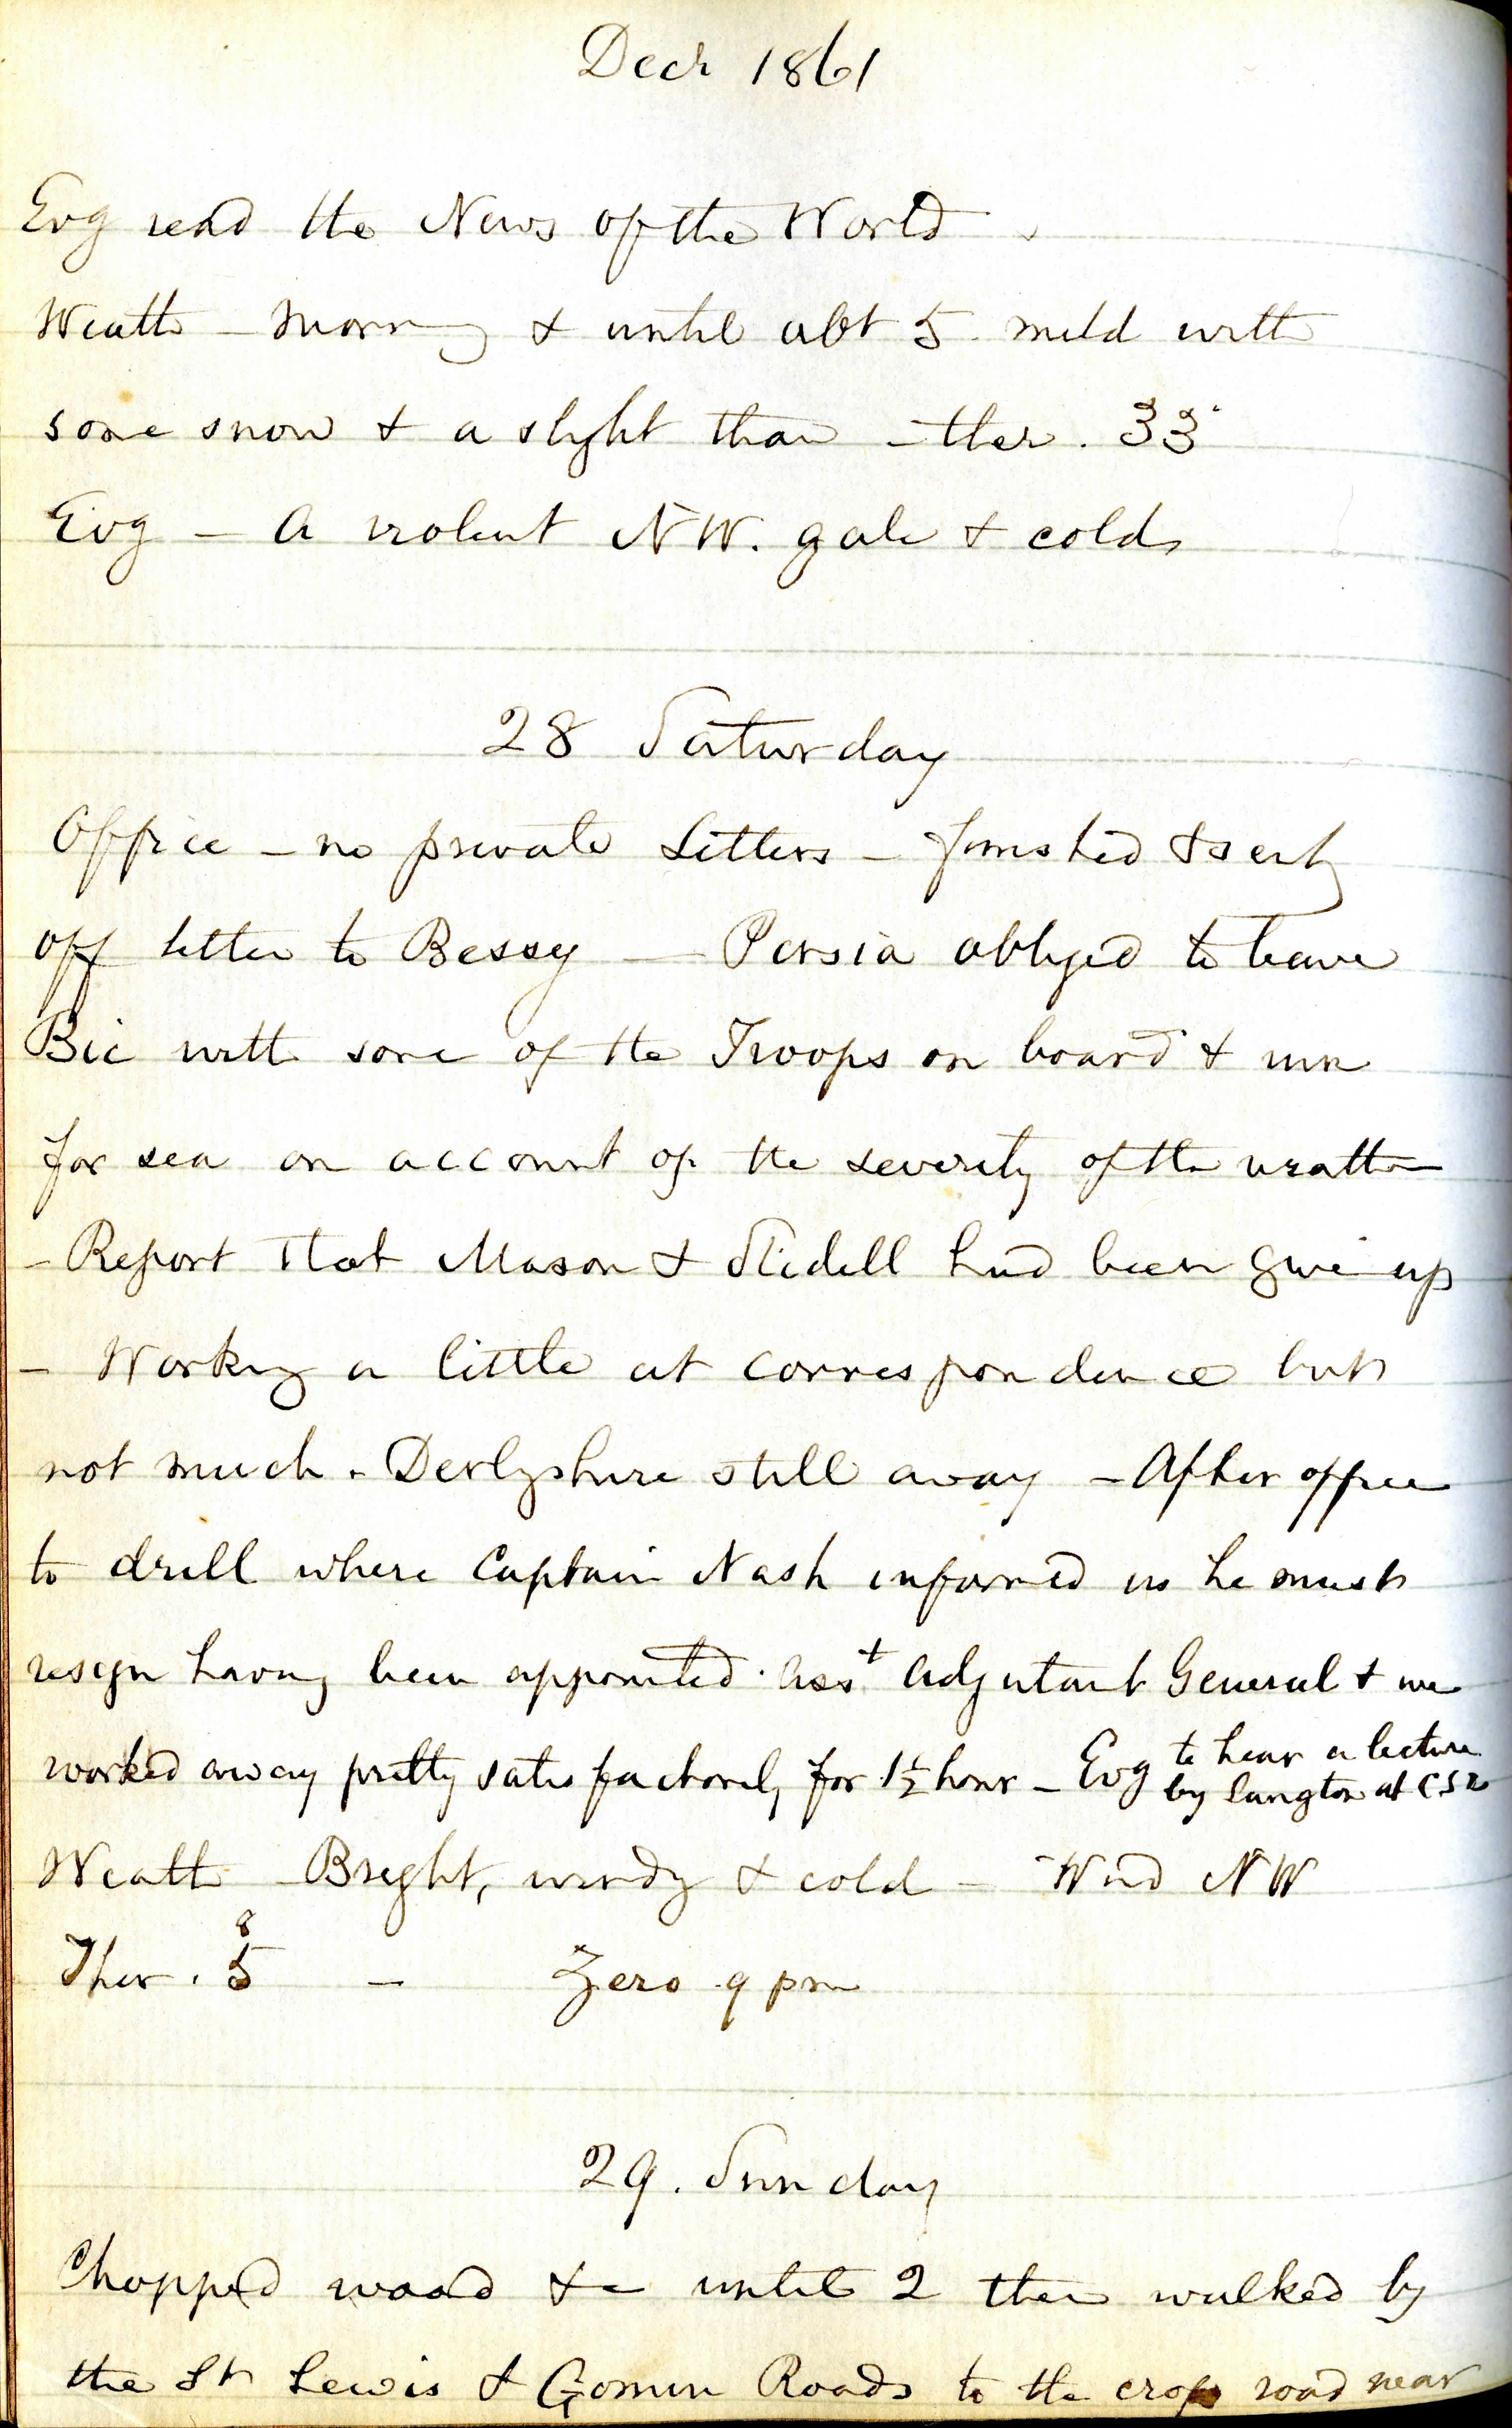 Decr 1861
Evg read the News of the World
Weath - Morng & until abt 5 mild with
some snow & a slight thaw - ther. 33°
Evg - a violent NW. gale & cold
28 Saturday
Office - no private Letters - finished & sent
off letter to Bessy - Persia obliged to leave
Bic with some of the Troops on board & run
for sea on account of the severity of the weather
- Report that Mason & Slidell had been give up
- Working a little at correspondence but
not much - Derbyshire still away - After office
to drill where Captain Nash informed us he must
resign having been appointed Asst Adjutant General & we
worked away pretty satisfactorily for 1½ hour - Evg to hear a lecture
by Langton at CSR
Weath - Bright, windy & cold - Wind NW
8
Ther. 5 - Zero 9 pm
29. Sunday
Chopped wood &c until 2 then walked by
the St Lewis & Gomin Roads to the cross road near